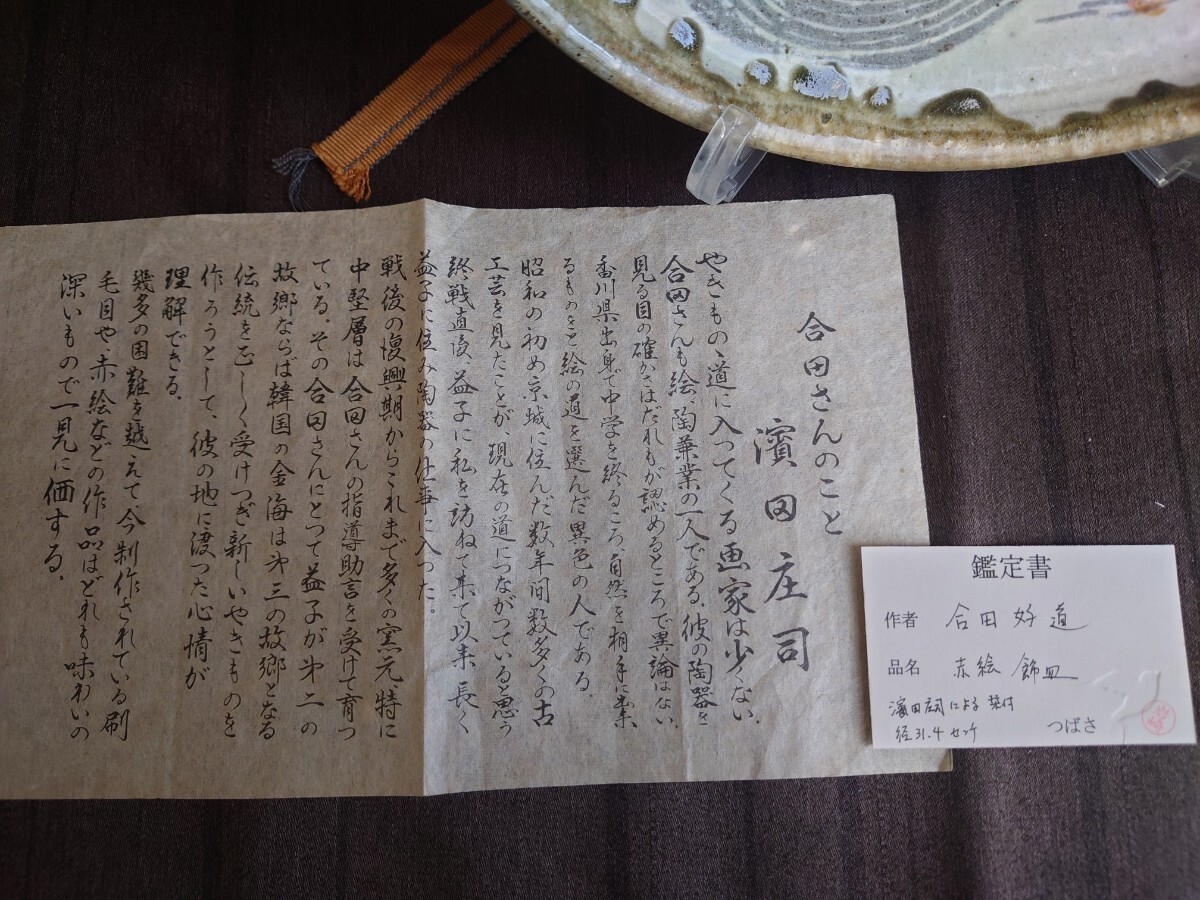 合田さんのこと
濱田庄司
やきもの、道に入つてくる画家は少くない.
合田さんも絵、陶兼業の一人である.彼の陶器を
見る目の確かさはだれもが認めるところで異論はない.
香川県出身で中学を終るころ、自然を相手に出来
るものをと絵の道を選んだ異色の人である.
昭和の初め京城に住んだ数年間数多くの古
工芸を見たことが、現在の道につながつていると思う
終戦直後、益子に私を訪ねて来て以来、長く
益子に住み陶器の仕事に入つた。
戦後の復興期からこれまで多くの窯元、特に
中堅層は合田さんの指導助言を受けて育つ
ている.その合田さんにとつて益子が第二の
故郷ならば韓国の金海は第三の故郷となる
伝統を正しく受けつぎ新しいやきものを
作ろうとして、彼の地に渡つた心情が
理解できる.
幾多の困難を越えて、今制作されている刷
毛目や、赤絵などの作品はどれも味わいの
深いもので一見に価する.
鑑定書
作者 合田好道
品名 赤絵 飾皿
濱田庄司による 箱付
径31.4センチ
つばさ